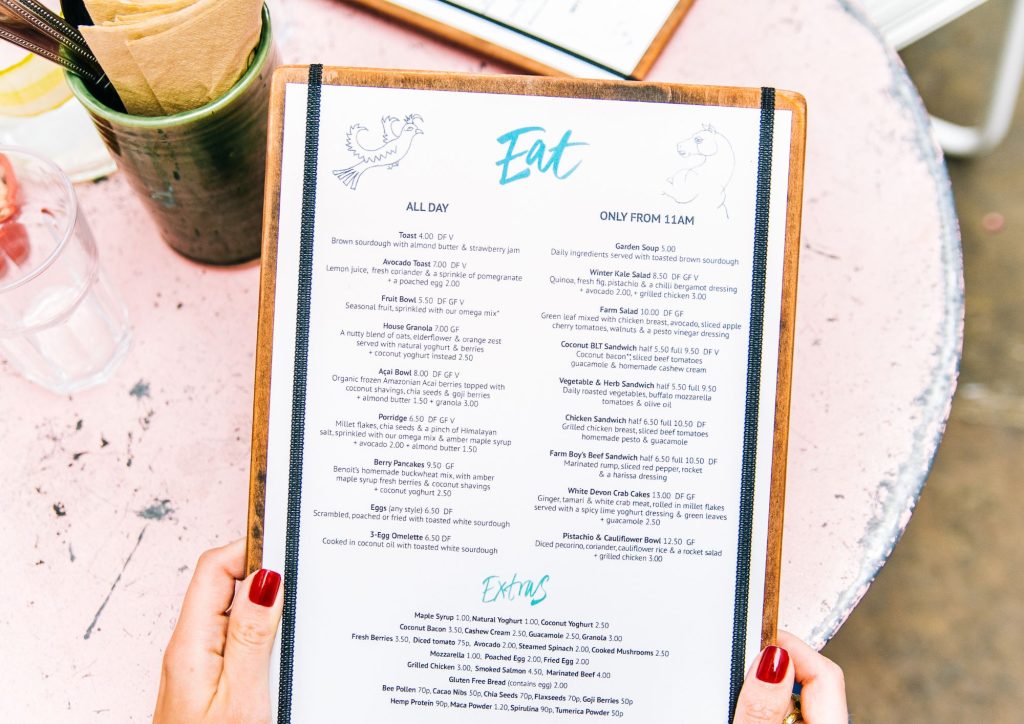 Eat
ALL DAY
Toast 4.00 DF V
Brown sourdough with almond butter & strawberry jam
Avocado Toast 7.00 DF V
Lemon juice, fresh coriander & a sprinkle of pomegranate
+ a poached egg 2.00
Fruit Bowl 5.50 DF GF V
Seasonal fruit, sprinkled with our omega mix*
House Granola 7.00 GF
A nutty blend of oats, elderflower & orange zest
served with natural yoghurt & berries
+ coconut yoghurt instead 2.50
Açai Bowl 8.00 DF GF V
Organic frozen Amazonian Acai berries topped with
coconut shavings, chia seeds & goji berries
+ almond butter 1.50 + granola 3.00
Porridge 6.50 DF GF V
Millet flakes, chia seeds & a pinch of Himalayan
salt, sprinkled with our omega mix & amber maple syrup
+ avocado 2.00 + almond butter 1.50
Berry Pancakes 9.50 GF
Benoit's homemade buckwheat mix, with amber
maple syrup fresh berries & coconut shavings
+ coconut yoghurt 2.50
Eggs (any style) 6.50 DF
Scrambled, poached or fried with toasted white sourdough
3-Egg Omelette 6.50 DF
Cooked in coconut oil with toasted white sourdough
ONLY FROM 11AM
Garden Soup 5.00
Daily ingredients served with toasted brown sourdough
Winter Kale Salad 8.50 DF GF V
Quinoa, fresh fig, pistachio & a chilli bergamot dressing
+ avocado 2.00, + grilled chicken 3.00
Farm Salad 10.00 DF GF
Green leaf mixed with chicken breast, avocado, sliced apple
cherry tomatoes, walnuts & a pesto vinegar dressing
Coconut BLT Sandwich half 5.50 full 9.50 DF V
Coconut bacon**, sliced beef tomatoes
guacamole & homemade cashew cream
Vegetable & Herb Sandwich half 5.50 full 9.50
Daily roasted vegetables, buffalo mozzarella
tomatoes & olive oil
Chicken Sandwich half 6.50 full 10.50 DF
Grilled chicken breast, sliced beef tomatoes
homemade pesto & guacamole
Farm Boy's Beef Sandwich half 6.50 full 10.50 DF
Marinated rump, sliced red pepper, rocket
& a harissa dressing
White Devon Crab Cakes 13.00 DF GF
Ginger, tamari & white crab meat, rolled in millet flakes
served with a spicy lime yoghurt dressing & green leaves
+ guacamole 2.50
Pistachio & Cauliflower Bowl 12.50 GF
Diced pecorino, coriander, cauliflower rice & a rocket salad
+ grilled chicken 3.00
Extras
Maple Syrup 1.00, Natural Yoghurt 1.00, Coconut Yoghurt 2.50
Coconut Bacon 3.50, Cashew Cream 2.50, Guacamole 2.50, Granola 3.00
Fresh Berries 3.50, Diced tomato 75p, Avocado 2.00, Steamed Spinach 2.00, Cooked Mushrooms 2.50
Mozzarella 1.00, Poached Egg 2.00, Fried Egg 2.00
Grilled Chicken 3.00, Smoked Salmon 4.50, Marinated Beef 4.00
Gluten Free Bread (contains egg) 2.00
Bee Pollen 70p, Cacao Nibs 50p, Chia Seeds 70p, Flaxseeds 70p, Goji Berries 50p
Hemp Protein 90p, Maca Powder 1.20, Spirulina 90p, Tumerica Powder 50p